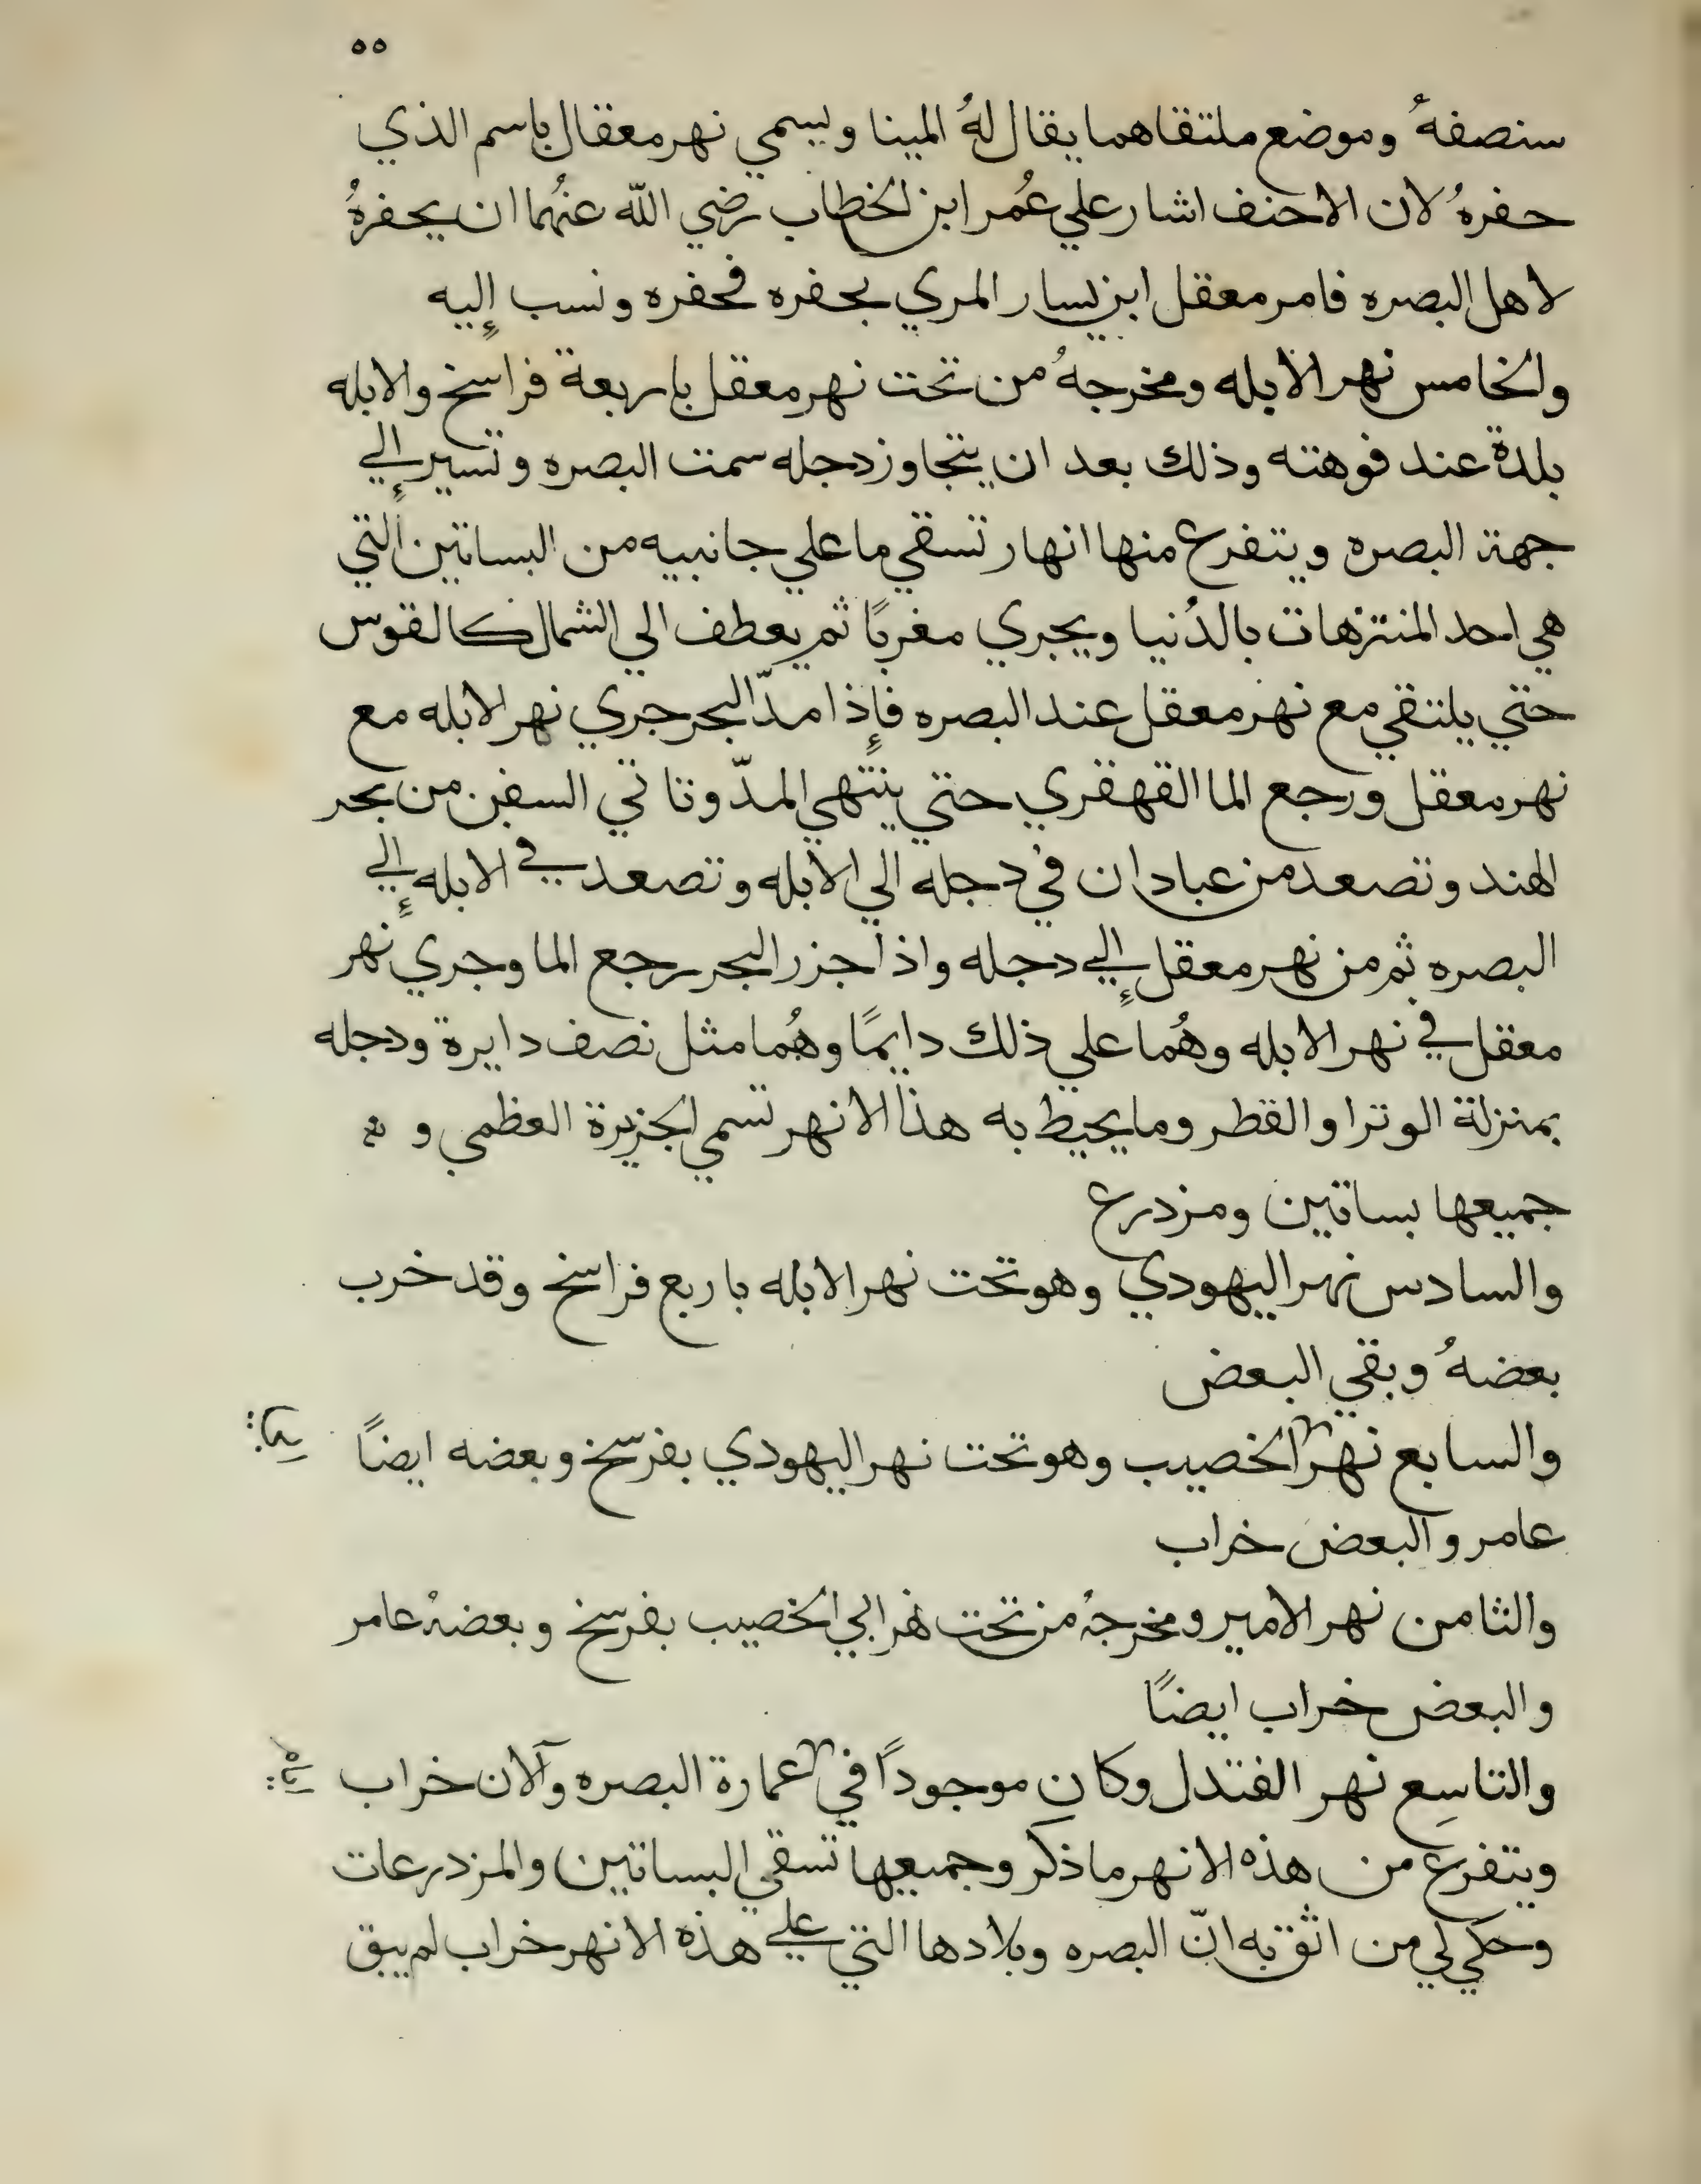 ٥٥
سنصفهُ وموضع ملتقاهما يقال لهُ المينا ويسمي نهر معقال باسم الذي
حفرهُ لان الاحنف اشار علي عُمر ابن الخطاب رضي الله عنهُما ان يحفرهُ
لاهل البصره فامر معقل ابن يسار المري بحفره فحفره ونسب إليه
والخامس نهر الابله ومخرجهُ من تحت نهر معقل باربعة فراسخ والابله
بلدة عند فوهته وذلك بعد ان يتجاوز دجله سمت البصره وتسير إلي
جهة البصره ويتفرع منها انهار تسقي ما علي جانبيه من البساتين التي
هي احد المنتزهات بالدُنيا ويجري مغربًا ثم يعطف الي الشمال كالقوس
حتي يلتقي مع نهر معقل عند البصره فإذا مدّ البحر جري نهر الابله مع
نهر معقل ورجع الما القهقري حتي ينتهي المدّ وتاتي السفن من بحر
الهند وتصعد من عبادان في دجله الي الابله وتصعد في الابله إلي
البصره ثم من نهر معقل إلي دجله واذا جزر البحر رجع الما وجري نهر
معقل في نهر الابله وهُما علي ذلك دايمًا وهُما مثل نصف دايرة ودجله
بمنزلة الوتر او القطر وما يحيط به هذا الانهر تسمي الجزيرة العظمي و
جميعها بساتين ومزدرع
والسادس نهر اليهودي وهو تحت نهر الابله باربع فراسخ وقد خرب
بعضهُ وبقي البعض
والسابع نهر الخصيب وهو تحت نهر اليهودي بفرسخ وبعضه ايضًا
عامر والبعض خراب
والثامن نهر الامير ومخرجهُ من تحت نهر ابي الخصيب بفرسخ وبعضهُ عامر
والبعض خراب ايضًا
والتاسِع نهر الفتدل وكان موجوداً في عمارة البصره وآلان خراب
ويتفرع من هذه الانهر ما ذكر وجميعها تسقي البساتين والمزدرعات
وحكي لي من اثق به انّ البصره وبلادها التي علي هذه الانهر خراب لم يبق